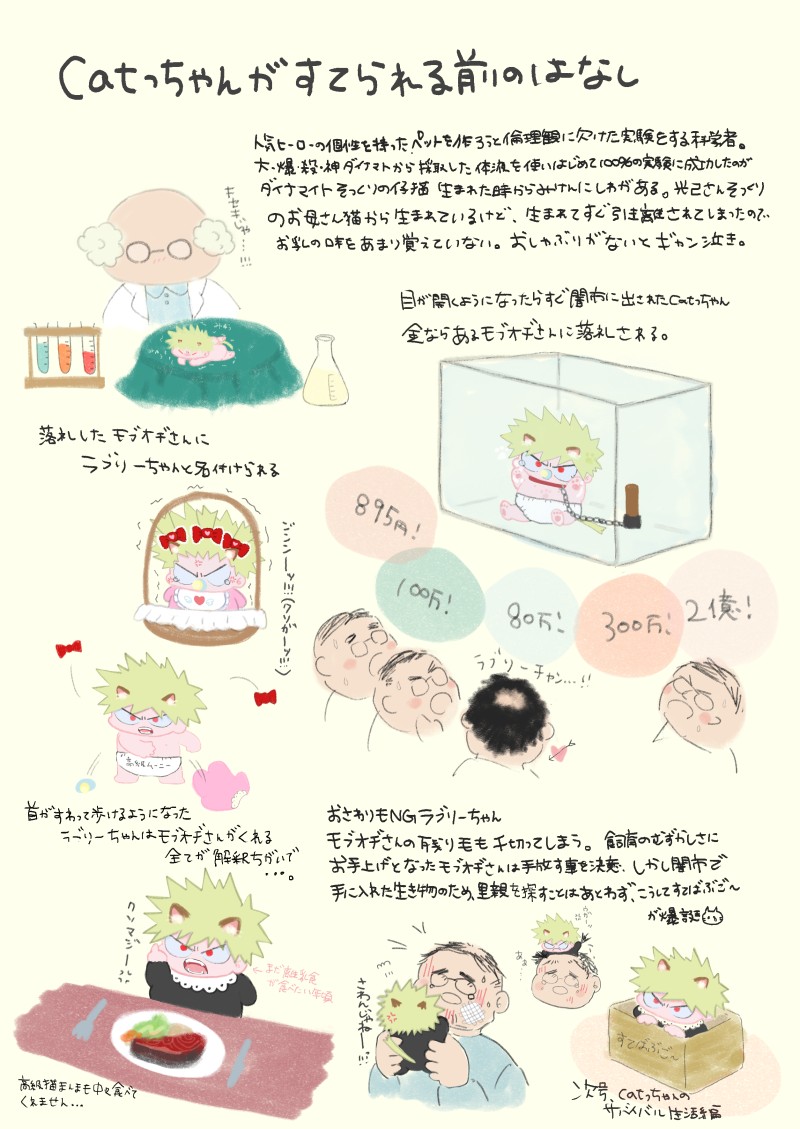 Catっちゃんがすてられる前のはなし
人気ヒーローの個性を持ったペットを作ろうと倫理観に欠けた実験をする科学者。
大・爆・殺・神ダイナマトから採取した体液を使いはじめて100%の実験に成功したのが
ダイナマイトそっくりの仔猫 生まれた時からみけんにしわがある。光己さんそっくり
のお母さん猫から生まれているけど、生まれてすぐ引き離されてしまったので
お乳の味をあまり覚えていない。おしゃぶりがないとギャン泣き。
キセキじゃ…!!!
みゅ
みゅ
目が開くようになったらすぐ闇市に出されたCatっちゃん
金ならあるモブオヂさんに落札される。
落札したモブオヂさんに
ラブリーちゃんと名付けられる
ンンンーッ!!!(クソがーッ!!!)
895円!
100万!
80万!
300万!
2億!
ラブリーチャン…!!
高級ムーニー
首がすわって歩けるようになった
ラブリーちゃんはモブオヂさんがくれる
全てが解釈ちがいで
…。
おさわりもNGラブリーちゃん
モブオヂさんの残り毛も千切ってしまう。飼育のむずかしさに
お手上げとなったモブオヂさんは手放す事を決意、しかし闇市で
手に入れた生き物のため、里親を探すことはあとわず、こうしてすてばぶご〜
が爆誕
クソマジーッ!!
←まだ離乳食
が食べたい年頃
高級猫まんまも中々食べて
くれません…
さわんじゃねー!!!
ああ…
すてばぶご〜
次号、Catっちゃんの
サバイバル生活編